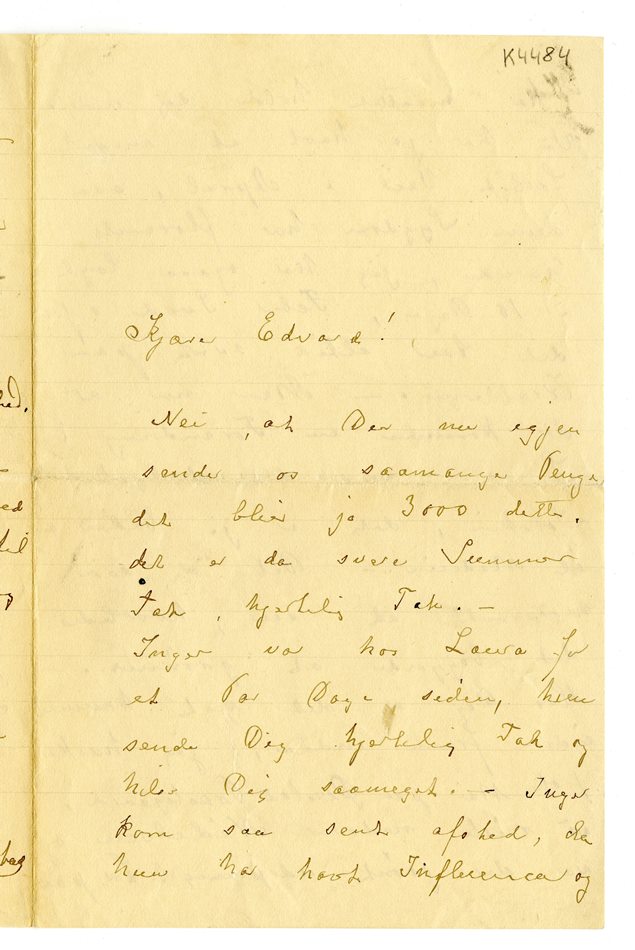 K4484
Kjære Edvard!
Nei, at Der nu igjen
sende os saamange Penge,
det blier jo 3000 dette.
det er da svere Summer
Tak, hjertelig Tak. —
Inger var hos Laura for
et Par Dage siden, hun
sende Dig hjertelig Tak og
hilse Dig saameget. — Inger
kom saa sent afsted, da
hun har havt Influenca og
hed.
ed
til